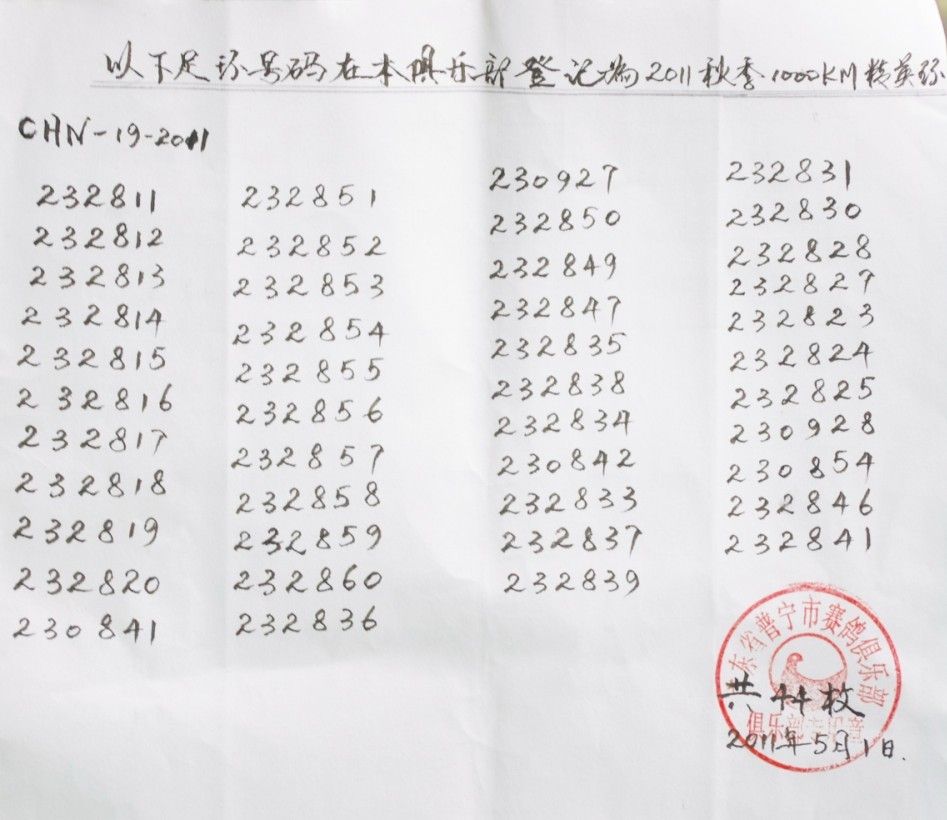 以下足环号码在本俱乐部登记为2011秋季1000KM精英环
CHN-19-2011
232811
232812
232813
232814
232815
232816
232817
232818
232819
232820
230841
232851
232852
232853
232854
232855
232856
232857
232858
232859
232860
232836
230927
232850
232849
232847
232835
232838
232834
230842
232833
232837
232839
232831
232830
232828
232827
232823
232824
232825
230928
230854
232846
232841
东省普宁市赛鸽俱乐部
俱乐部专用章
共44枚
2011年5月1日.